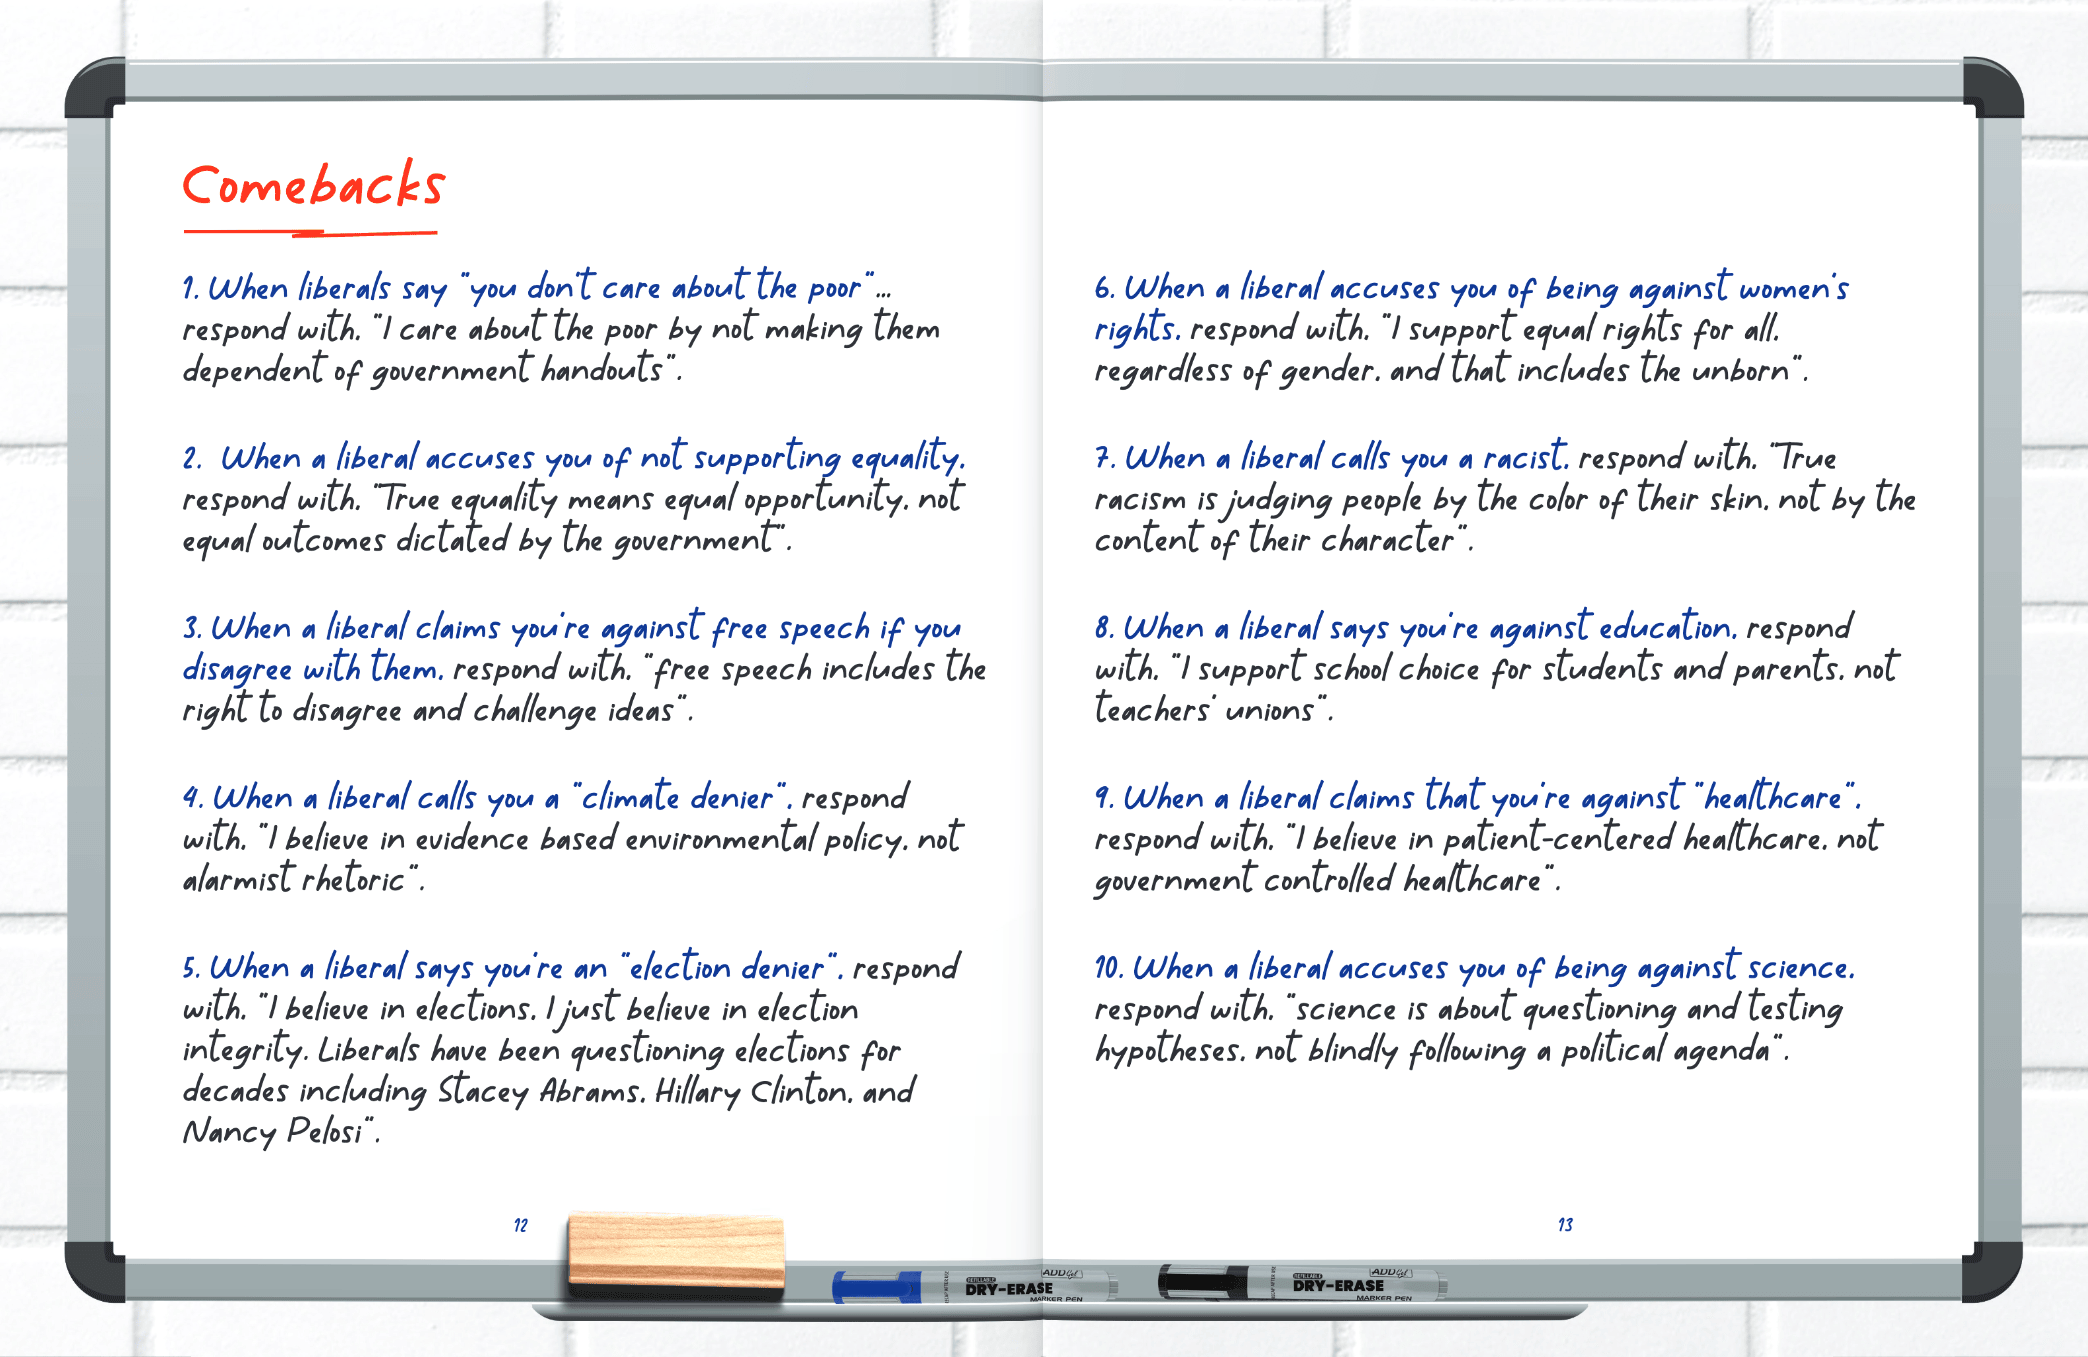 Comebacks
1. When liberals say "you don't care about the poor"...
respond with, "I care about the poor by not making them
dependent of government handouts".
2. When a liberal accuses you of not supporting equality,
respond with, "True equality means equal opportunity, not
equal outcomes dictated by the government".
3. When a liberal claims you're against free speech if you
disagree with them, respond with, "free speech includes the
right to disagree and challenge ideas".
4. When a liberal calls you a "climate denier", respond
with, "I believe in evidence based environmental policy, not
alarmist rhetoric".
5. When a liberal says you're an "election denier", respond
with, "I believe in elections, I just believe in election
integrity. Liberals have been questioning elections for
decades including Stacey Abrams, Hillary Clinton, and
Nancy Pelosi".
12
6. When a liberal accuses you of being against women's
rights, respond with, "I support equal rights for all,
regardless of gender, and that includes the unborn".
7. When a liberal calls you a racist, respond with, "True
racism is judging people by the color of their skin, not by the
content of their character".
8. When a liberal says you're against education, respond
with, "I support school choice for students and parents, not
teachers' unions".
9. When a liberal claims that you're against "healthcare",
respond with, "I believe in patient-centered healthcare, not
government controlled healthcare".
10. When a liberal accuses you of being against science,
respond with, "science is about questioning and testing
hypotheses, not blindly following a political agenda".
13
REFILLABLE ADD Gel
DRY-ERASE
MARKER PEN
REFILLABLE ADD Gel
DRY-ERASE
MARKER PEN